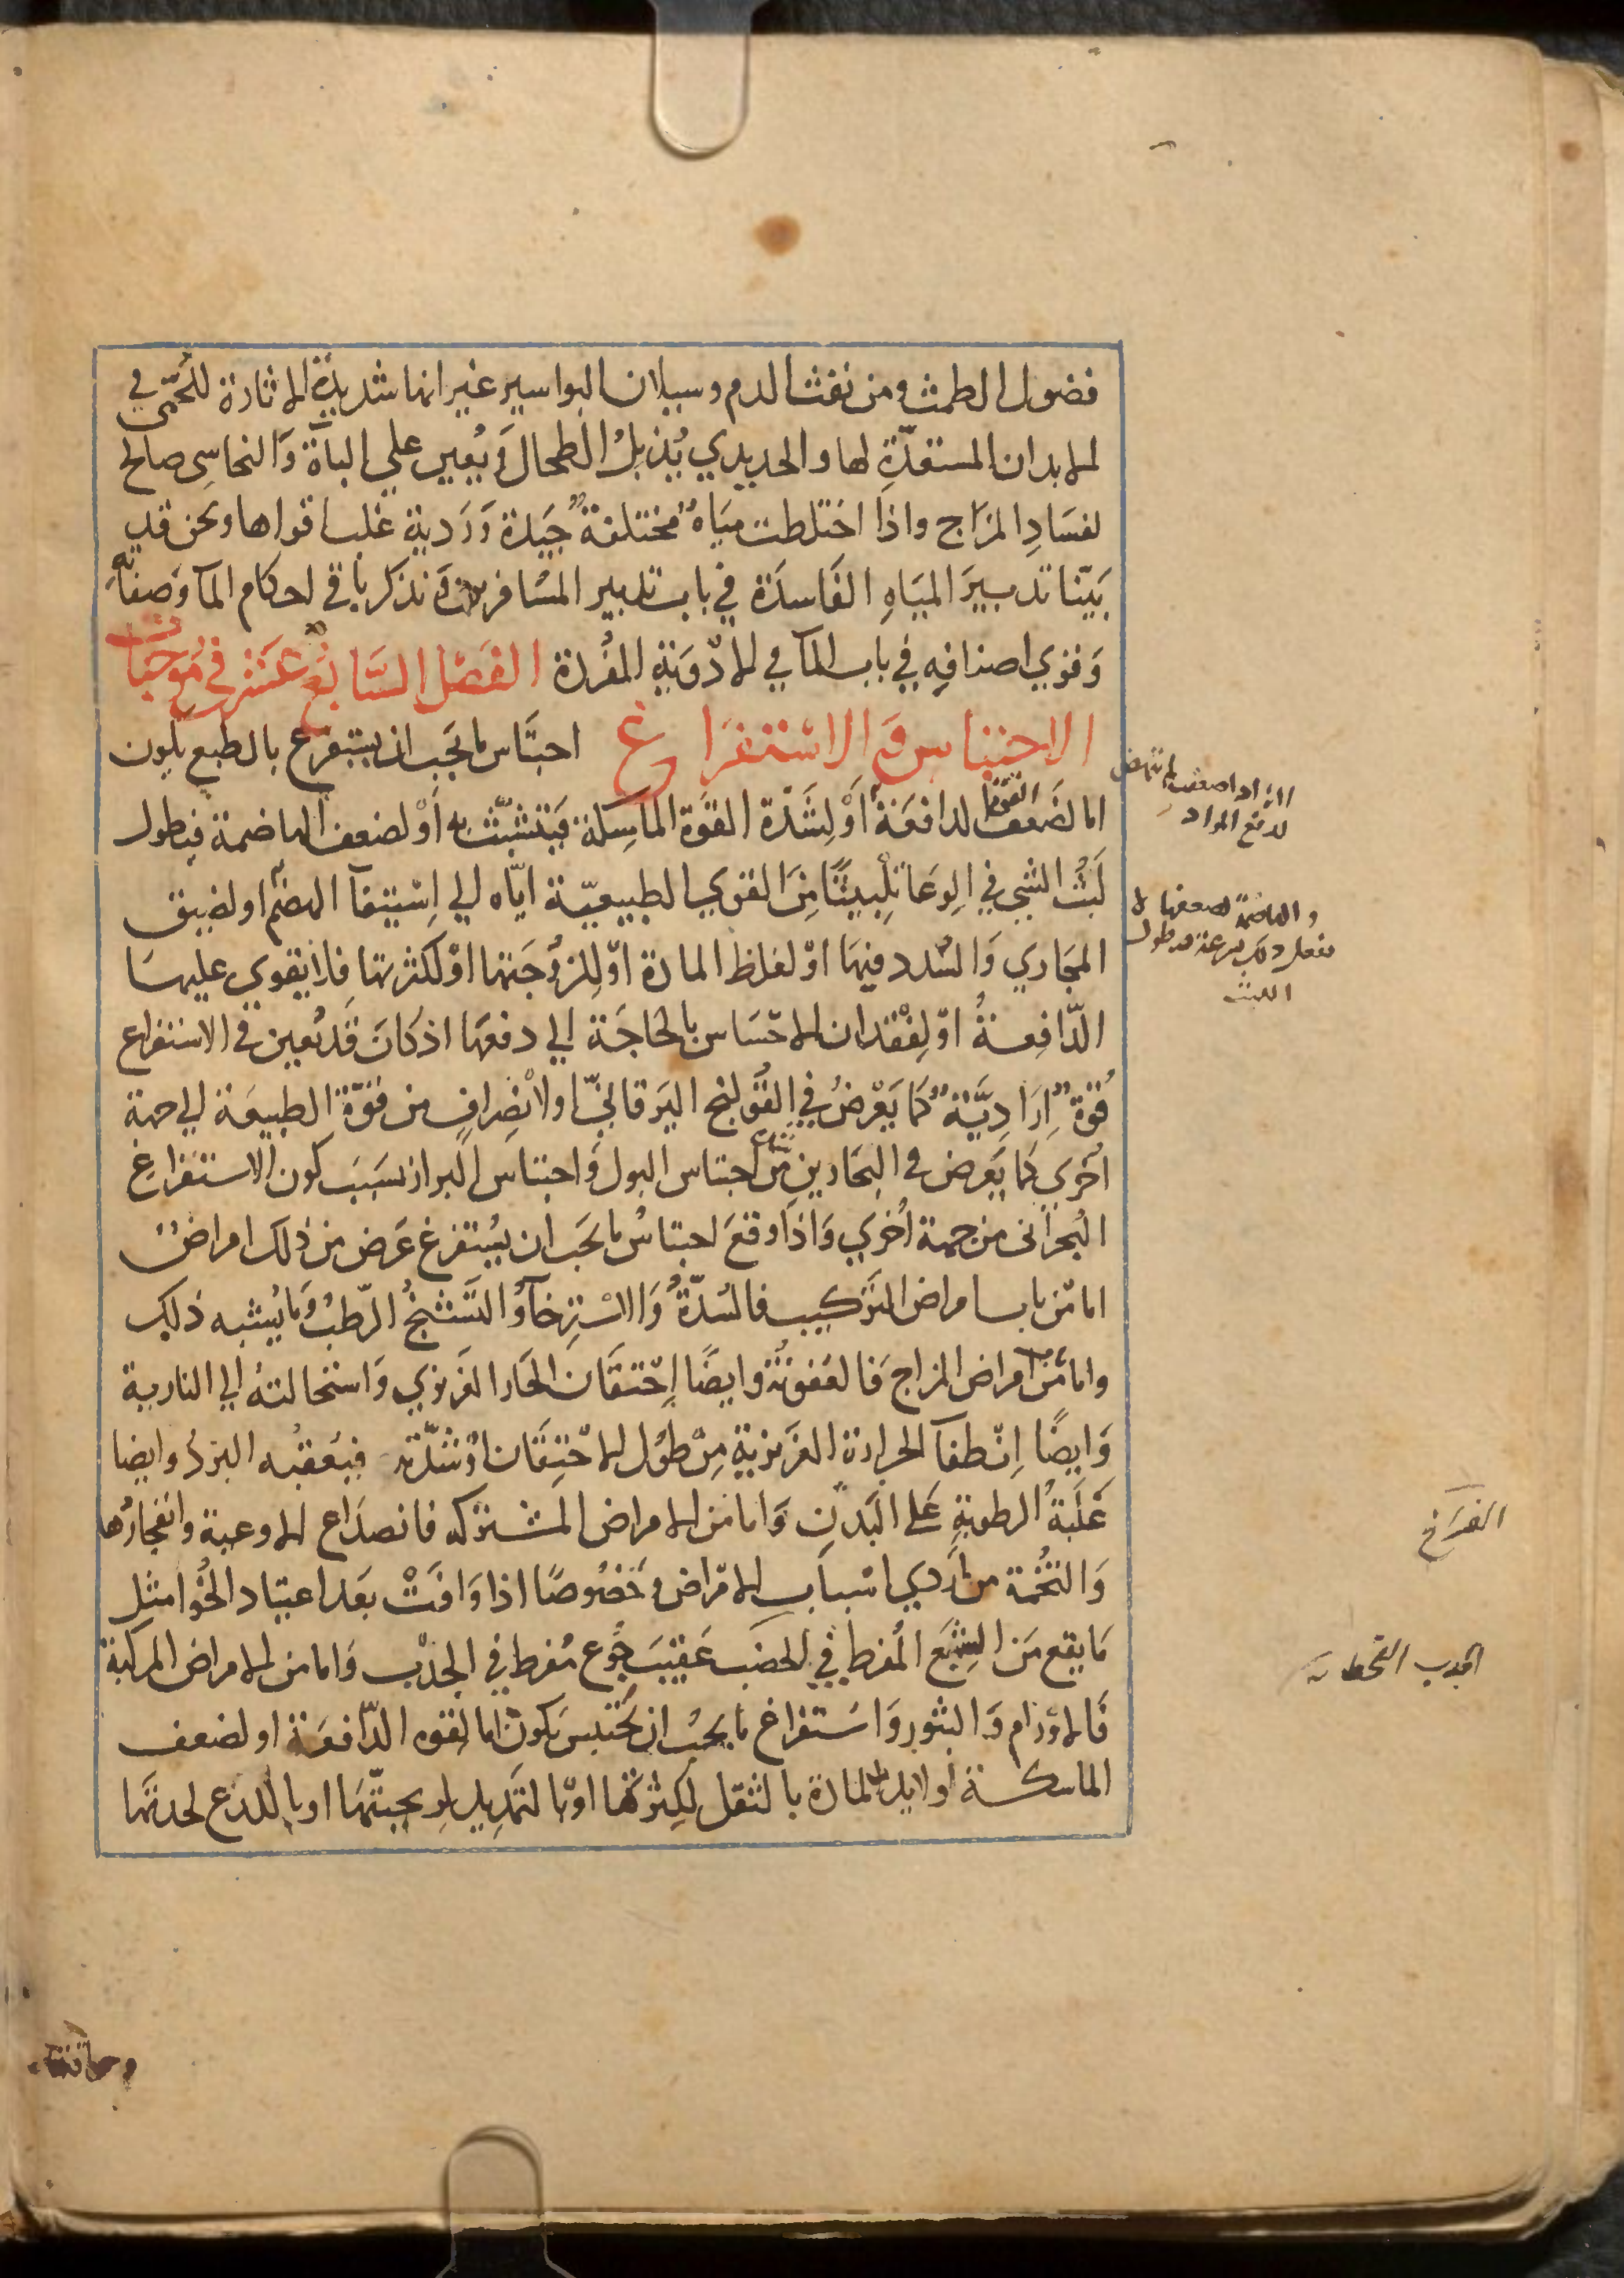 فضول الطمث ومن نفث الدم وسيلان البواسير غير انها شديدة الاثارة للحمّى في
الابدان المستعدّة لها والحديدي يُذبلُ الطحال وَيُعين علي الباٰة وَالنحاسى صالح
لفسَادِ المزَاج واذا اختلطت ميَاهٌ مختلفةٌ جَيدة وَرَدية غلب اقواها ونحن قد
بَيّنا تدبيرَ الميَاهِ الفَاسدَة في باب تدبير المسَافرين وَنذكر باقي احكام الماٰ وَصفاتهِ
وَقوي اصنافِه في باب الماٰ في الادوَيةِ المفرَدة الفَصْل السَّابعُ عَشر في مُوجبات
الاحتباس وَ الاسْتفرَاغ احتبَاس ما يجَب ان يستفرغ بالطبع يكون
اما لضَعف القوة الدافعَة أوْ لِشَدّة القوَة الماسِكة فتَتشبَّث به أوْ لضعف الهاضمة فيطول
لَبْثُ الشي في الوِعَا تلبيثًا مِنَ القوي الطبيعيّة ايّاه الي اِسْتيفآ الهضم او لضيق
المجَاري وَالسُدد فيهَا اوْ لغلظ المادة اوْ للزوجَتها اوْ لكثرتها فلا يَقوي عليهَا
الدّافِعةُ اوْ لِفقْدان الاحْسَاس بالحَاجَة الي دفعهَا اذ كانَ قَد تُعين في الاستفراغ
قُوةٌ اِرَادِيَّةٌ كما يَعْرضُ في القُولنج اليَرقانيّ او لاِنْصِرافٍ من قُوَّة الطبيعَة الي جهة
اخرَي كما يَعرض في البحَارين من احتباس البول وَاحتباس البراز بسَبَب كون الاستفراغ
البُحرانى من جهة اُخرَي وَاذَا وقعَ احتباسُ ما يجَب ان يُستفرغ عَرض من ذلك امراضٌ
اما من باب امراض التَركيب فالسُدّةُ وَالاسْترِخآءُ وَالتشنجُ الرّطبُ وَما يُشبه ذلك
واما من امراض المزاج فَالعُفونةُ وايضًا اِحْتقَان الحَار الغَريزي وَاستحَالتهُ الي النارية
وَايضًا اِنْطفآ الحرارة الغَريزية مِنْ طول الاحْتِقَان اوْ شدّته فيُعقبُه البَردُ وايضا
غَلَبةُ الرطوبةِ عَلى البَدَنِ وَاما من الامراض المشتركه فانصدَاع الاوعية وانفجارُها
وَالتخُمة من اَردي اسْباب الامْراض وَخصُوصًا اذا وَافَتْ بعَد اعتياد الخُوا مثل
مَا يقع مَن الشِبَع المُفرط في الخصَب عَقيَبَ جُوع مُفرط في الجدْب وَاما من الامراض المركبة
فَالاوْرَام وَالبثُور وَاسَتفرَاغ ما يجبُ ان يَحتبسَ يَكون اما لقوه الدّافعَة او لضعف
الماسكة او لايذا المادة بالثقل لكِثرتها اوْ بالتَمدِيد لريحيّتهَا او باللدع لحدتها
القوة
الدافعة اذا ضعفت لم تنهض
لدفع المواد
والهاضمة لضعفها لا
تفعل ذلك بسرعة فيطول
اللبث
الفراغ
الجدب القحط